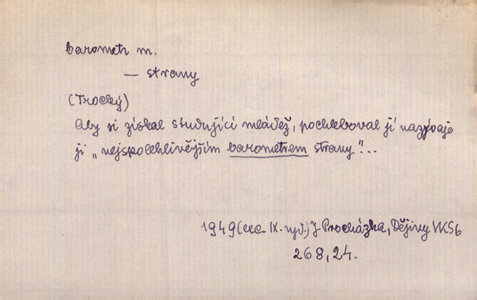 barometr m.
— strany
(Trocký)
Aby si získal studující mládež, pochleboval jí nazývaje
ji „nejspolehlivějším barometrem strany"...
1949 (exc. IX. vyd.) J Procházka, Dějiny VKSb
268, 24.